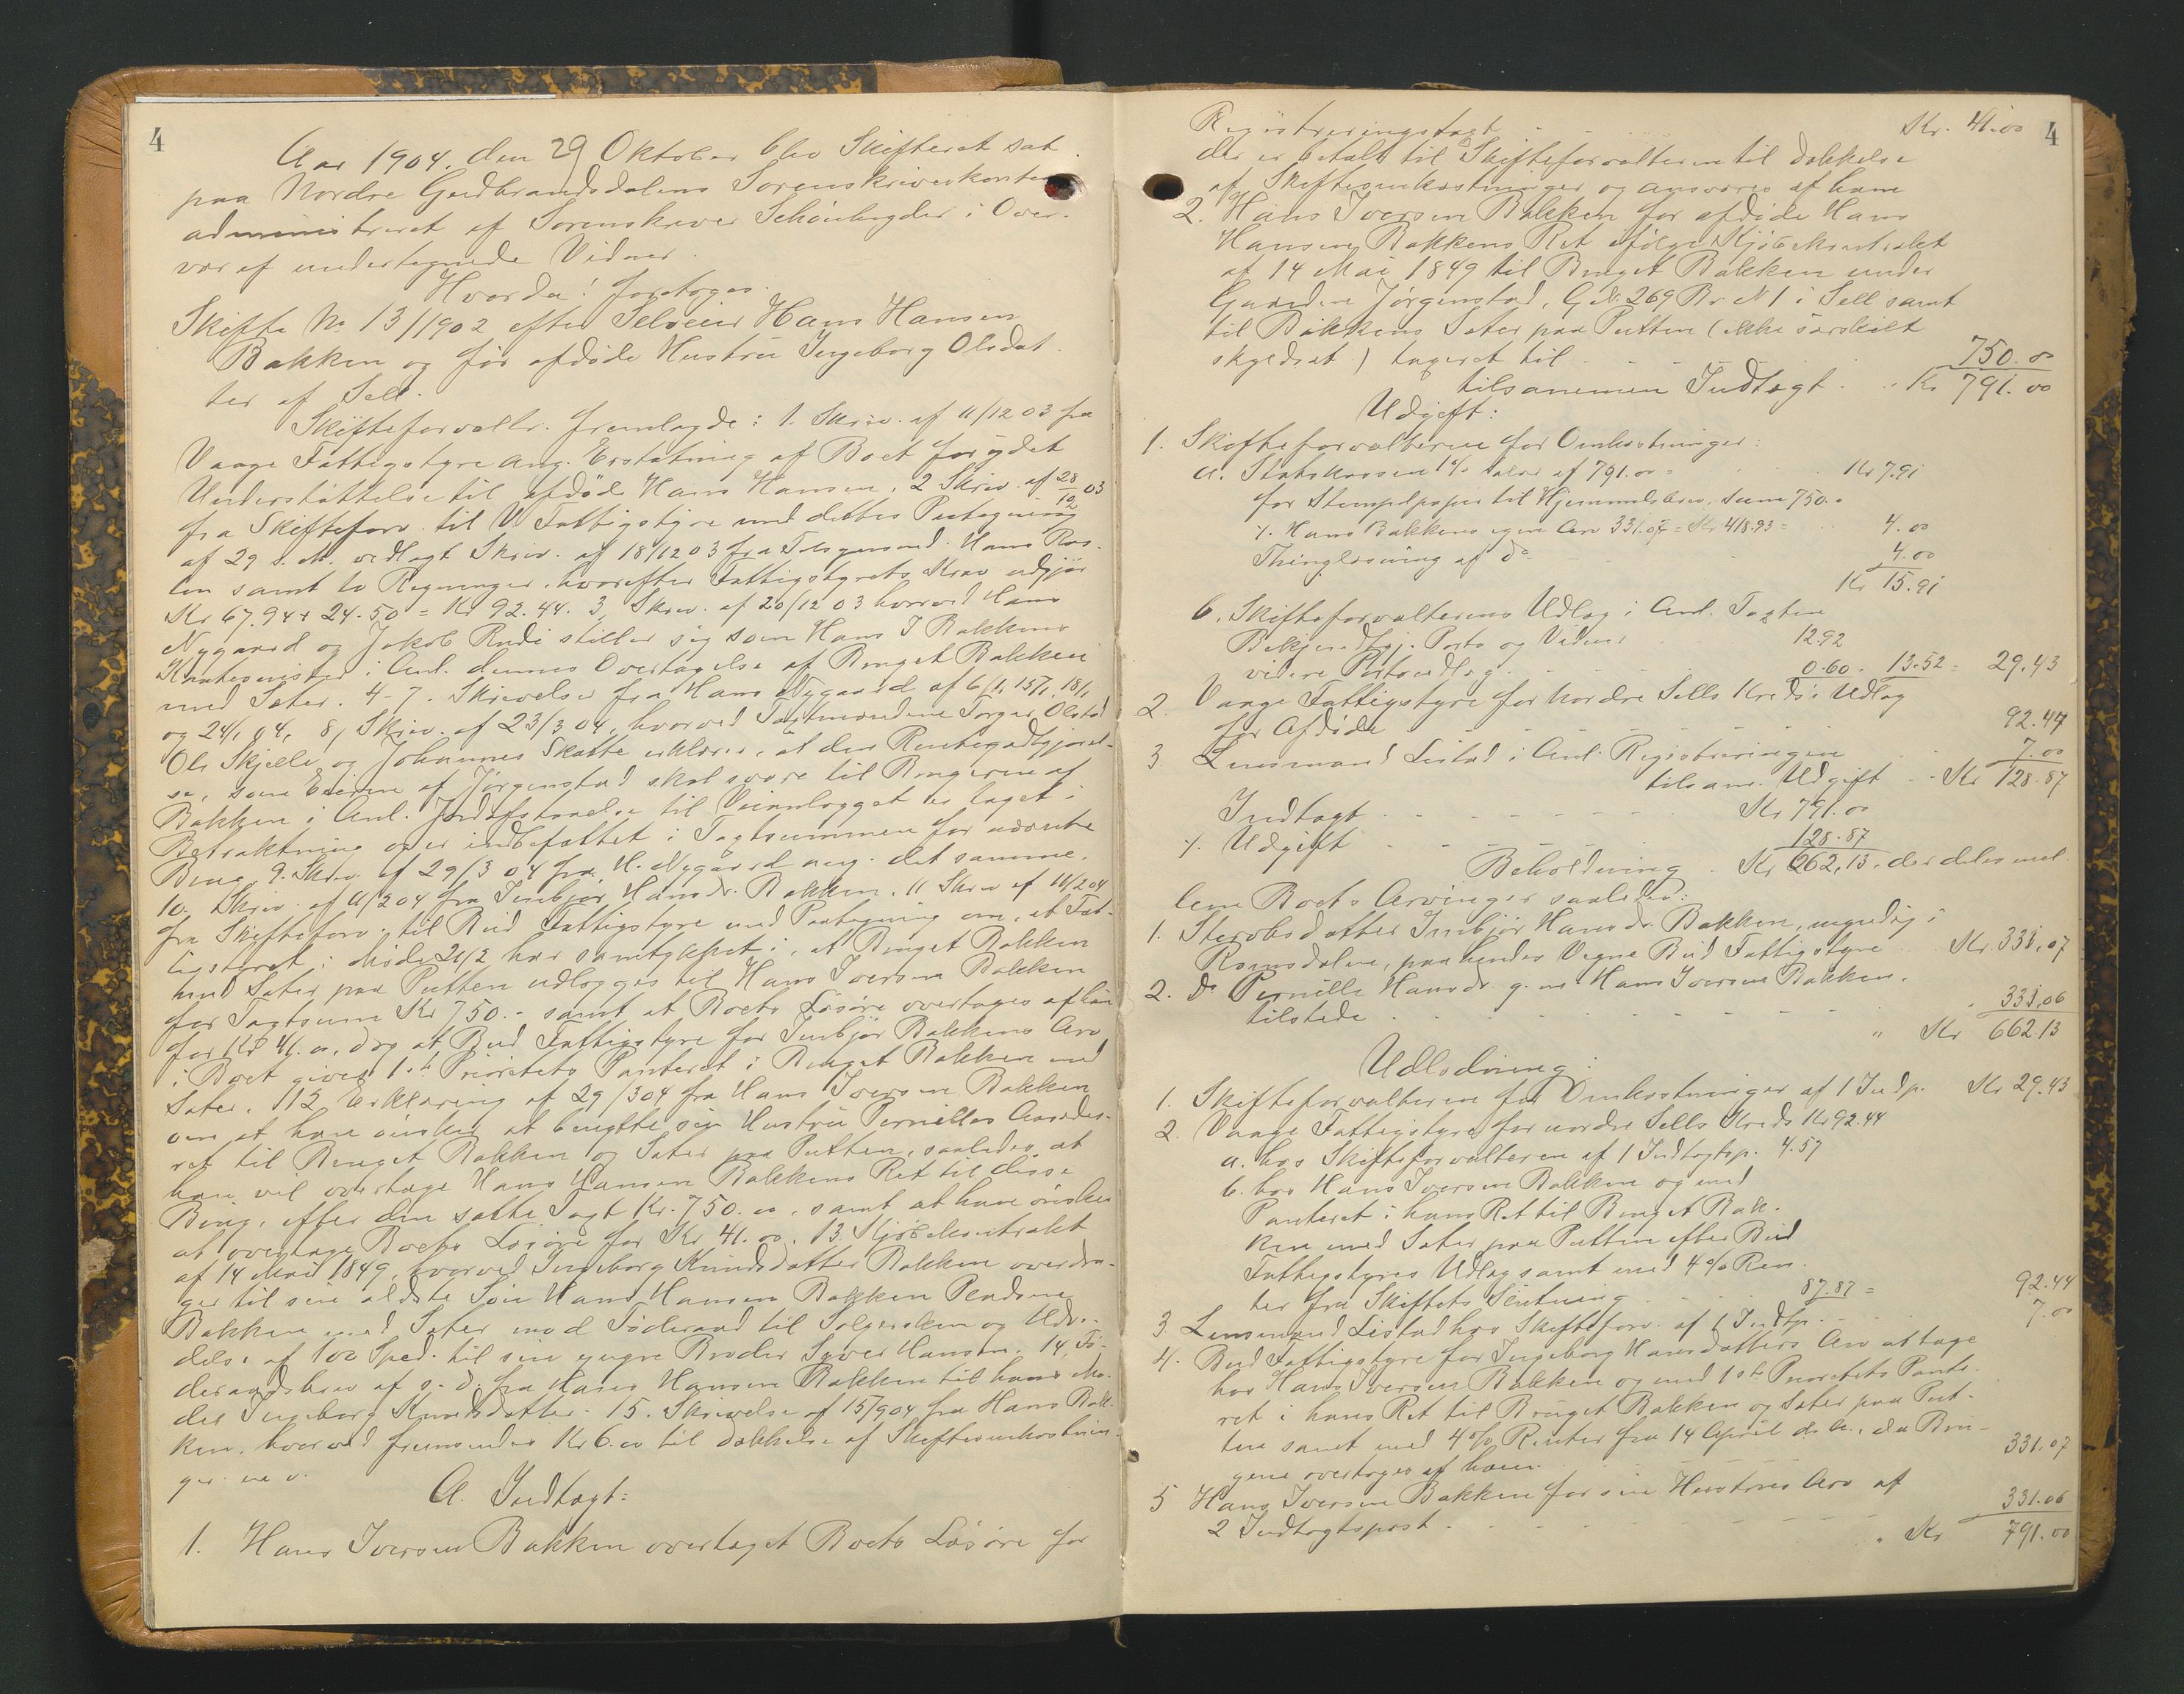 4
Aar 1904, den 29 Oktober blev Skifteret sat
paa Nordre Gudbrandsdalens Sorenskriverkontor
administreret af Sorenskriver Schönheyder i Over-
vær af undertegnede Vidner.
Hvorda! foretoges.
Skifte No 13/1902 efter Selveier Hans Hansen
Bakken og før afdøde Hustru Ingeborg Olsdat-
ter af Sell.
Skifteforvaltr. fremlagde: 1. Skriv. af 11/12 03 fra
Vaage Fattigstyre ang. Erstatning af Boet for ydet
Understøttelse til afdøde Hans Hansen. 2 Skriv. af 28/12 03
fra Skifteforv. til V. Fattigstyre med dettes Paategning
af 29 s. M. vedlagt Skriv. af 18/12 03 fra Tilsynsmd. Hans
samt to Regninger, hvorefter Fattigstyrets Krav udgjør
Kr 67.94 + 24.50 = Kr 92.44. 3, Skriv. af 20/12 03 hvorved Hans
Nygaard og Jakob Rudi stiller sig som Hans I Bakkens
Kautionister i Anl. dennes Overtagelse af Bruget Bakken
med Sæter. 4-7. Skrivelse fra Hans Nygaard af 6/1, 15/1, 18/1
og 24/1 04, 8, Skriv. af 23/3 04, hvorved Taxtmændene Torger Olstad
Ole Skjelle og Johannes Skatte erklærer, at den Rentegodtgjørel-
se, som Eieren af Jørgenstad skal svare til Brugeren af
Bakken i Anl. Jordafstaaelse til Veianlægget er taget i
Betraktning og er indbefattet i Taxtsummen for nævnte
Brug. 9. Skriv. af 29/3 04 fra H. Nygaard ang. det samme.
10. Skriv. af 11/2 04 fra Imbjør Hansdr. Bakken. 11 Skriv af 16/2 04
fra Skifteforv. til Bud Fattigstyre med Paategning om, at Fat-
tigstyret i Møde 21/2 har samtykket i, at Bruget Bakken
med Sæter paa Putten udlægges til Hans Iversen Bakken
for Taxtsum Kr 750.- samt at Boets Løsøre overtages af ham
for Kr 41.00, dog at Bud Fattigstyre for Imbjør Bakkens Arv
i Boet gives 1ste Prioritets Panteret i Bruget Bakken med
Sæter. 12 Erklæring af 29/3 04 fra Hans Iversen Bakken
om at han ønsker at benytte sin Hustru Pernilles Aasædes-
ret til Bruget Bakken og Sæter paa Putten, saaledes at
han vil overtage Hans Hansen Bakkens Ret til disse
Brug, efter den satte Taxt Kr. 750.00, samt at han ønsker
at overtage Boets Løsøre for Kr 41.00. 13. Kjøbekontrakt
af 14 Mai 1849, hvorved Ingeborg Knudsdatter Bakken overdra-
ger til sin ældste Søn Hans Hansen Bakken Pladsen
Bakken med Sæter mod Føderaad til Sælgersken og Udre-
delse af 100 Spd. til sin yngre Broder Syver Hansen. 14, Fø-
deraadsbrev af s. d. fra Hans Hansen Bakken til hans Mo-
der Ingeborg Knudsdatter. 15. Skrivelse af 15/9 04 fra Hans Bak-
ken, hvorved fremsendes Kr 6.00 til Dækkelse af Skifteomkostnin-
ger m. v.
A. Indtægt:
1. Hans Iversen Bakken overtaget Boets Løsøre for
4
Registreringstaxt Kr. 41.00
der er betalt til Skifteforvalteren til Dækkelse
af Skifteomkostninger og ansvares af ham
2. Hans Iversen Bakken for afdøde Hans
Hansen Bakkens Ret ifølge Kjøbekontrakt
af 14 Mai 1849 til Bruget Bakken under
Gaarden Jørgenstad, G.N. 269 Br. N 1 i Sell samt
til Bakkens Sæter paa Putten (ikke særskilt
skyldsat) taxeret til 750.00
tilsammen Indtægt Kr 791.00
Udgift:
1. Skifteforvalteren for Omkostninger:
a. Statskassen 1% af 791.00 = Kr 7.91
for Stempelpapir til Hjemmelsbrev, Sum 750.-
÷ Hans Bakkens egen Arv 331.07 = Kr 418.93 = 4.00
Thinglæsning af do 4.00
Kr 15.91
b. Skifteforvalterens Udlæg i Anl. Taxten
Bekjendtgj. Porto og Vidner 12.92
videre Portoudlæg 0.60. 13.52 = 29.43
2. Vaage Fattigstyre for Nordre Sells Kreds's Udlæg
for Afdøde 92.44
3. Lensmand Listad i Anl. Registreringen 7.00
tilsam. Udgift Kr 128.87
Indtægt Kr 791.00
÷ Udgift 128.87
Beholdning Kr 662,13, der deles mel-
lem Boets Arvinger saaledes:
1. Stervbsdatter Imbjør Hansdr. Bakken, umyndig i
Romsdalen, paa hendes Vegne Bud Fattigstyre Kr 331,07
2. Do Pernille Hansdr. g. m. Hans Iversen Bakken.
tilstede 331.06
" Kr 662.13
Udlodning:
1. Skifteforvalteren for Omkostninger af 1 Indp. Kr 29.43
2. Vaage Fattigstyre for nordre Sells Kreds Kr 92.44
a. hos Skifteforvalteren af 1 Indtægtsp. 4.57
b. hos Hans Iversen Bakken og med
Panteret i hans Ret til Bruget Bak-
ken med Sæter paa Putten efter Bud
Fattigstyres Udlæg samt med 4% Ren-
ter fra Skiftets Slutning 87.87 = 92.44
3 Lensmand Listad hos Skifteforv. af 1 Indtp. 7.00
4. Bud Fattigstyre for Ingeborg Hansdatters Arv at tage
hos Hans Iversen Bakken og med 1ste Prioritets Pante-
ret i hans Ret til Bruget Bakken og Sæter paa Put-
ten samt med 4% Renter fra 14 April d. A., da Bru-
gene overtoges af ham 331.07
5 Hans Iversen Bakken for sin Hustrus Arv af
2 Indtægtspost 331.06
" Kr 791.00